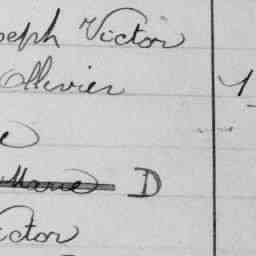 seph Victor
Ollivier
e
Marie D
ictor